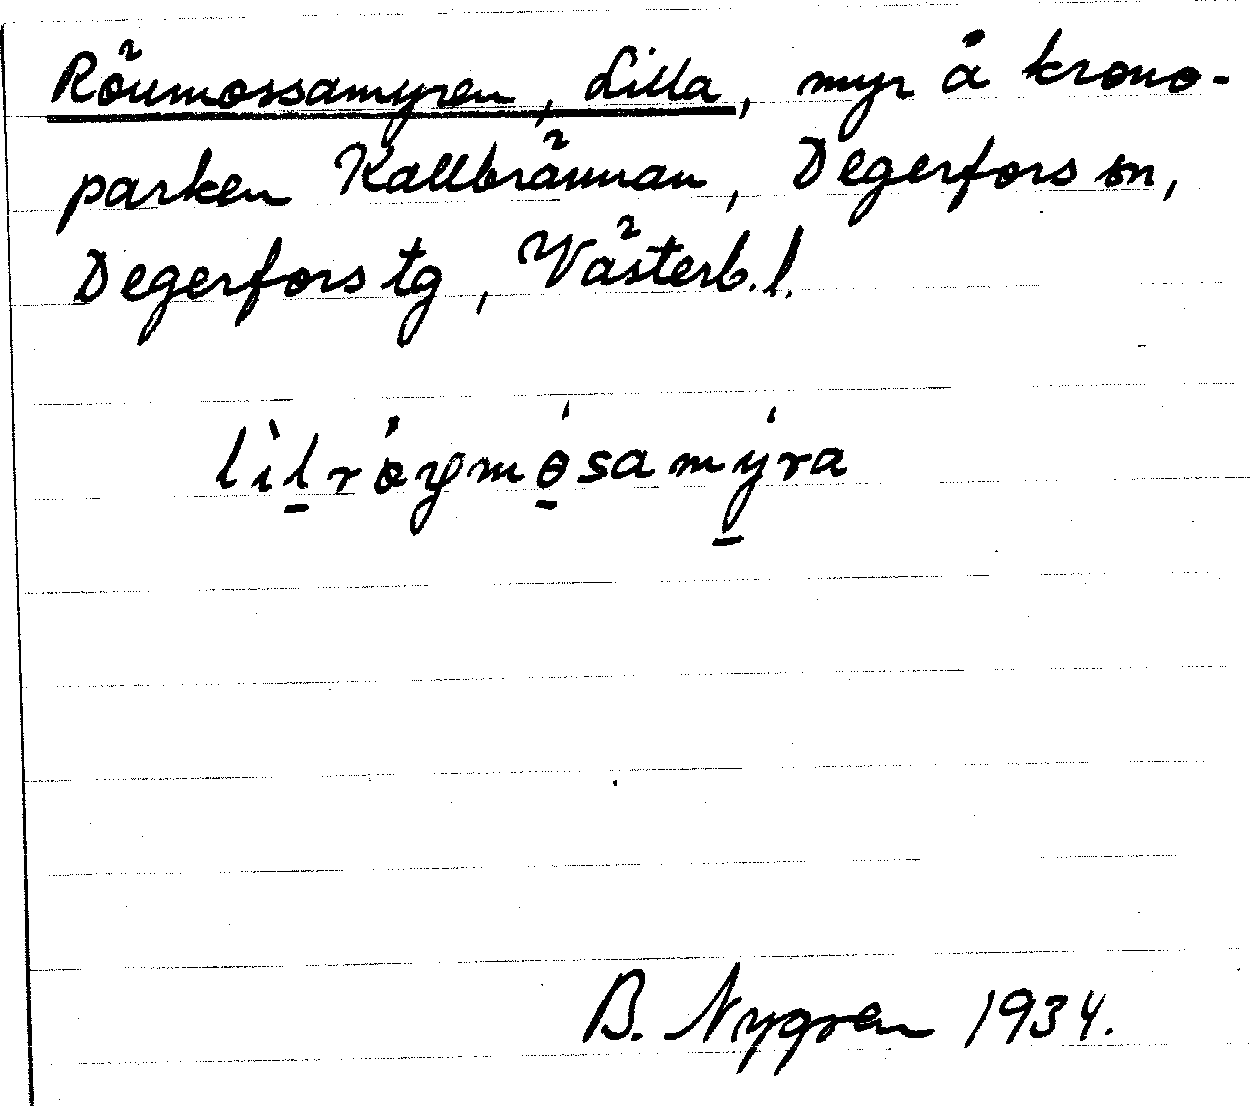 Röumossamyren, Lilla, myr å krono-
parken Kallbrännan, Degerfors sn,
Degerfors tg, Västerb. l.
B. Nygren 1934.